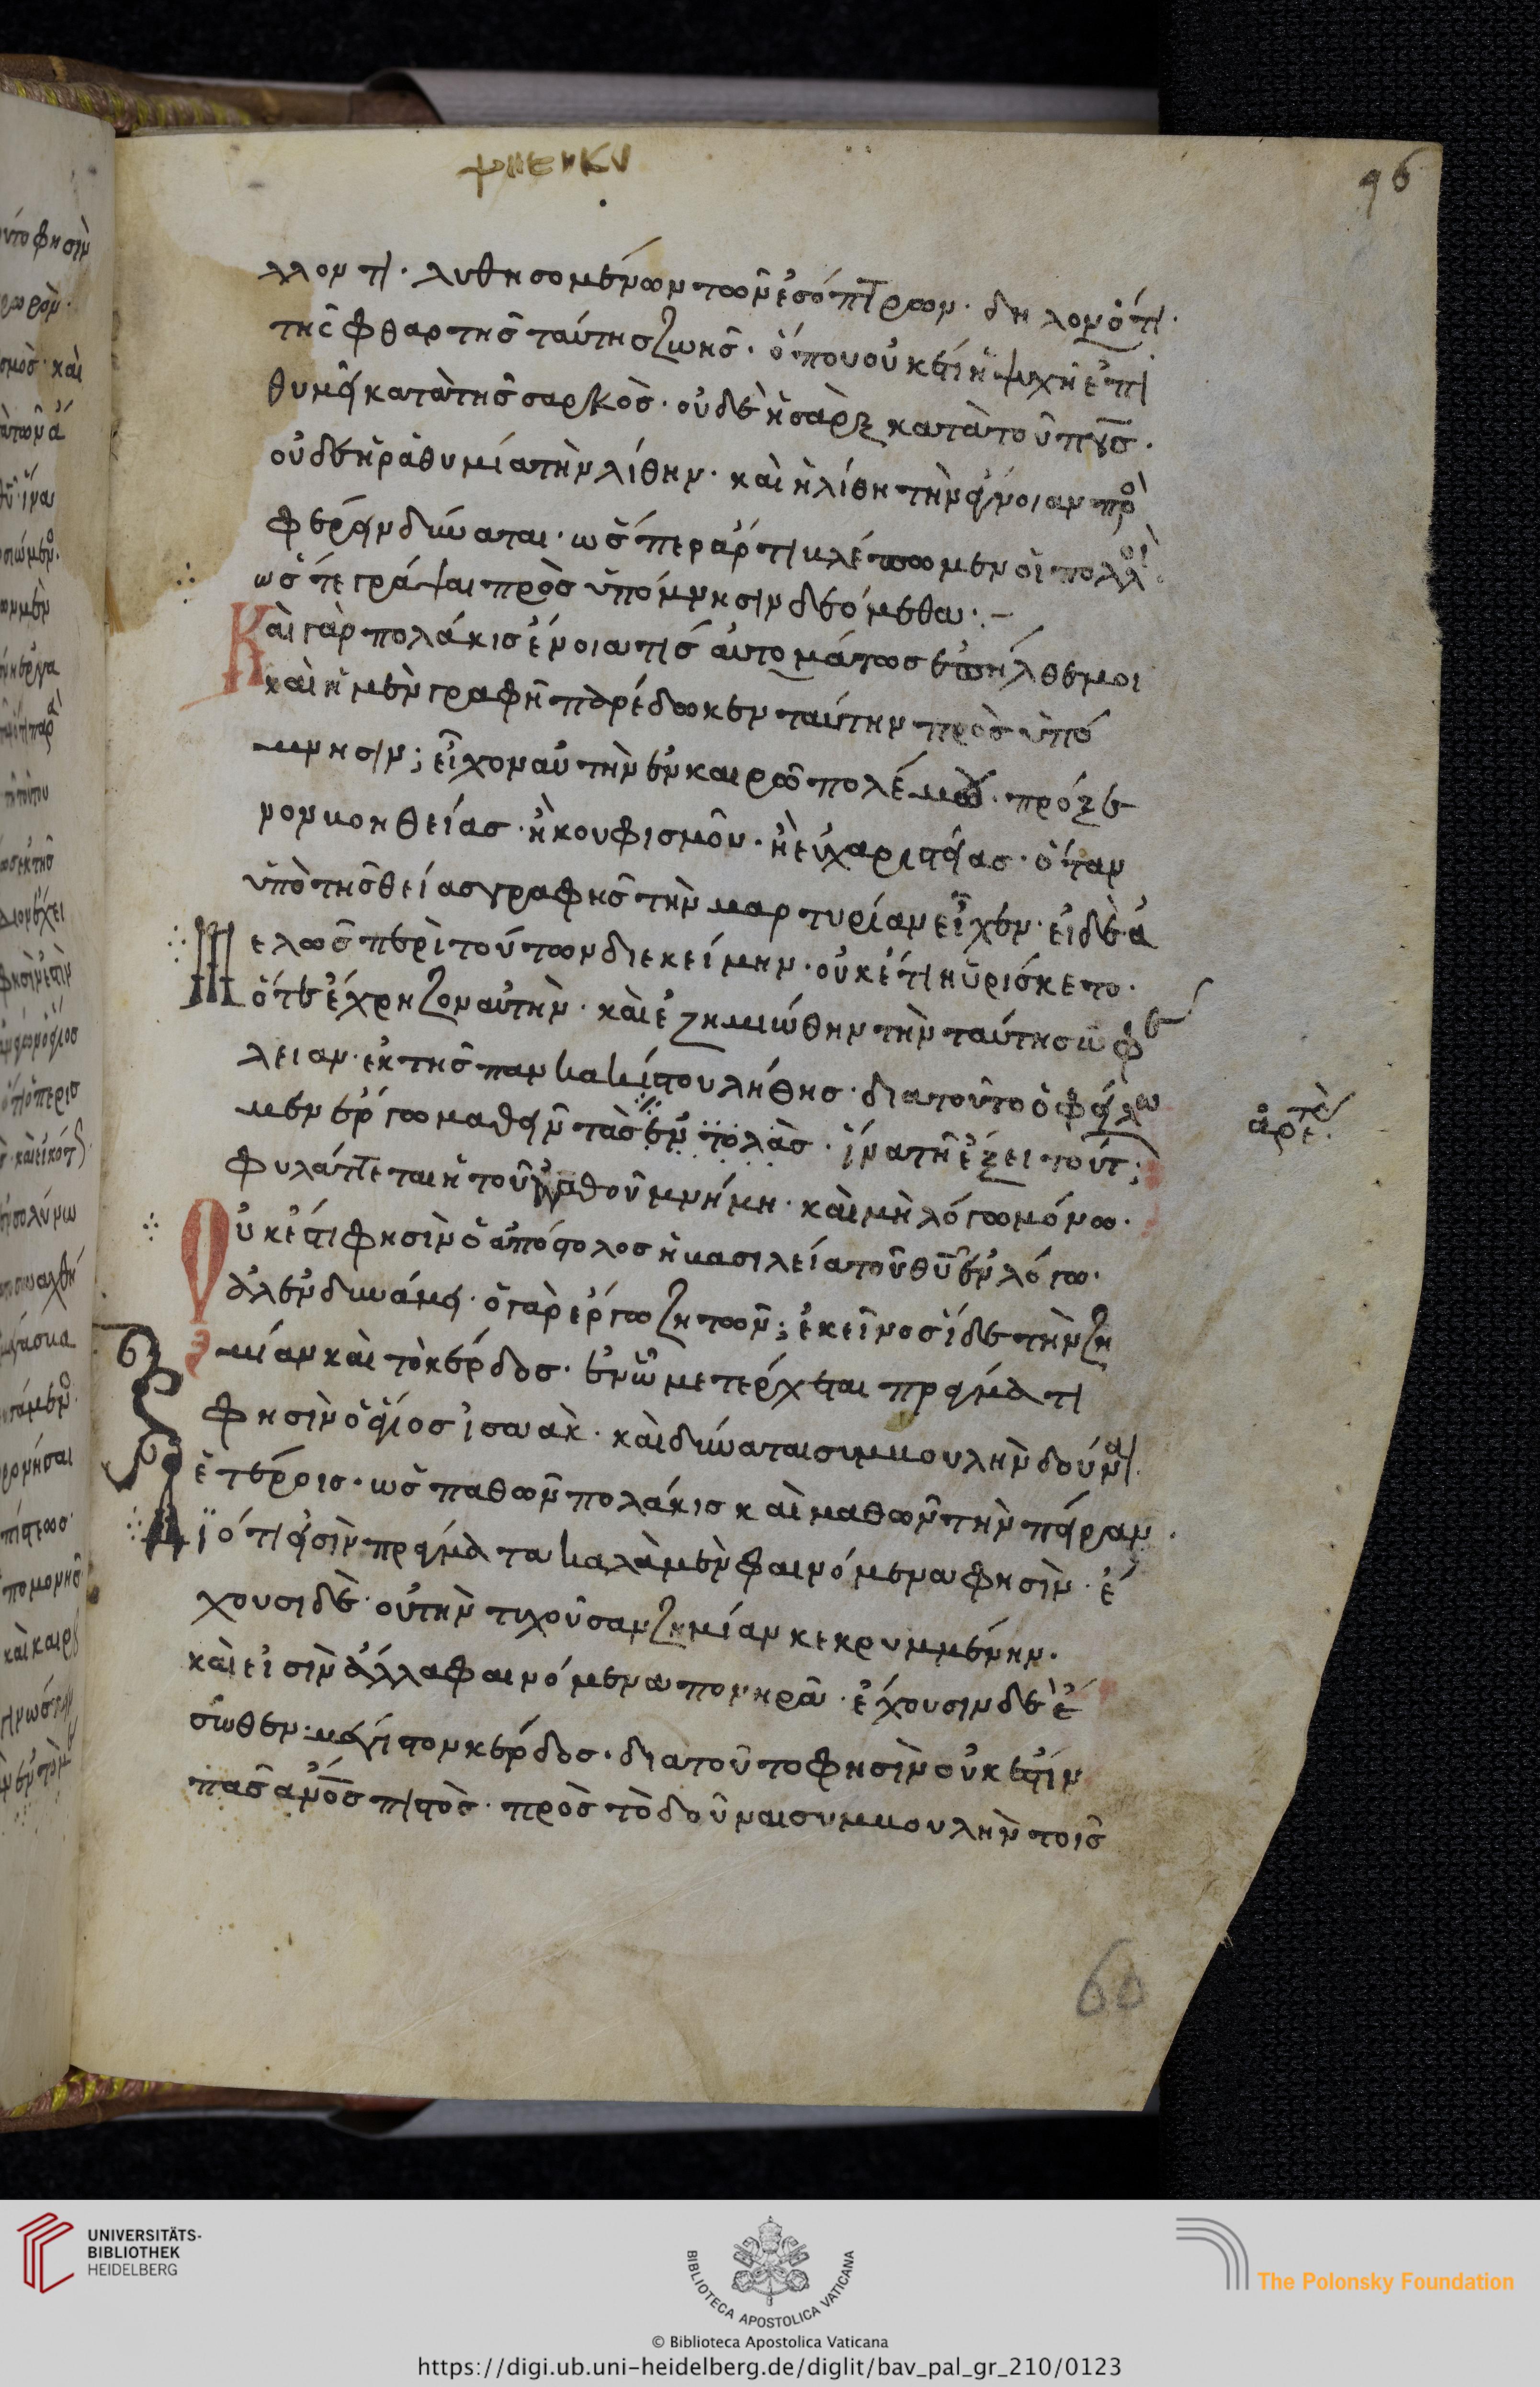 96
λλοντι· λυθησομένων τῶν ἐσόπτρων· δηλονότι·
τῆς φθαρτῆς ταύτης ζωῆς· ὅπου οὐκέτι ἡ ψυχὴ ἐπι
θυμεῖ κατὰ τῆς σαρκὸς· οὐδὲ ἡ σὰρξ κατὰ τοῦ πνς·
οὐδὲ ἡ ῥαθυμία τὴν λίθην· καὶ ἡ λίθη τὴν ἄγνοιαν προ
φέρειν δύναται· ὥσπερ ἄρτι βλέπωμεν οἱ πολλοὶ
ὥστε γράψαι πρὸς ὑπόμνησιν δεόμεθα·
Καὶ γὰρ πολάκις ἔνοια τις αὐτομάτως ἐπῆλθε μοι
καὶ ἡ μὲν γραφῆ παρέδωκεν ταύτην πρὸς ὑπό
μνησιν; εἶχον αὐτὴν ἐν καιρῶ πολέμου· πρόξε
νον βοηθείας· ἢ κουφισμῶν· ἢ εὐχαριστείας· ὅταν
ὑπὸ τῆς θείας γραφῆς τὴν μαρτυρίαν εἶχεν· εἰ δὲ ἀ
μελῶς περὶ τούτων διεκείμην· οὐκέτι ηὑρίσκετο·
ὅτε ἔχρηζον αὐτὴν· καὶ ἐζημιώθην τὴν ταύτης ὠφέ
λειαν· ἐκ τῆς παγκακίστου λήθης· διατοῦτο ὀφείλω
μεν ἔργω μαθεῖν τὰς ἐντολὰς· ἵνα τῆ ἕξει τούτ
ἀρετὲ
φυλάττεται ἡ τοῦ ἀγαθοῦ μνήμη· καὶ μὴ λόγω μόνω·
Οὐκέτι φησὶν ὁ ἀπόστολος ἡ βασιλεία τοῦ θυ ἐν λόγω·
ἀλ ἐν δυνάμει· ὁ γὰρ ἔργω ζητῶν; ἐκεῖνος οἶδε τὴν ζη
μίαν καὶ τὸ κέρδος· ἐν ὧ μετέρχεται πράγματι
φησὶν ὁ ἅγιος ἰσαὰκ· καὶ δύναται συμβουλὴν δοῦναι
ἑτέροις· ὡς παθῶν πολάκις καὶ μαθῶν τὴν πεῖραν·
Διότι εἰσὶν πράγματα καλὰ μὲν φαινόμενα φησὶν· ἔ
χουσι δὲ· οὐ τὴν τυχοῦσαν ζημίαν κεκρυμμένην·
καὶ εἰσὶν ἄλλα φαινόμενα πονηρὰ· ἔχουσιν δὲ ἔ
σωθεν· μέγιστον κέρδος· διατοῦτο φησὶν οὐκ ἔστιν
πᾶς ανος πιστὸς· πρὸς τὸ δοῦναι συμβουλὴν τοῖς
60
UNIVERSITÄTS-
BIBLIOTHEK
HEIDELBERG
BIBLIOTECA APOSTOLICA VATICANA
The Polonsky Foundation
© Biblioteca Apostolica Vaticana
https://digi.ub.uni-heidelberg.de/diglit/bav_pal_gr_210/0123